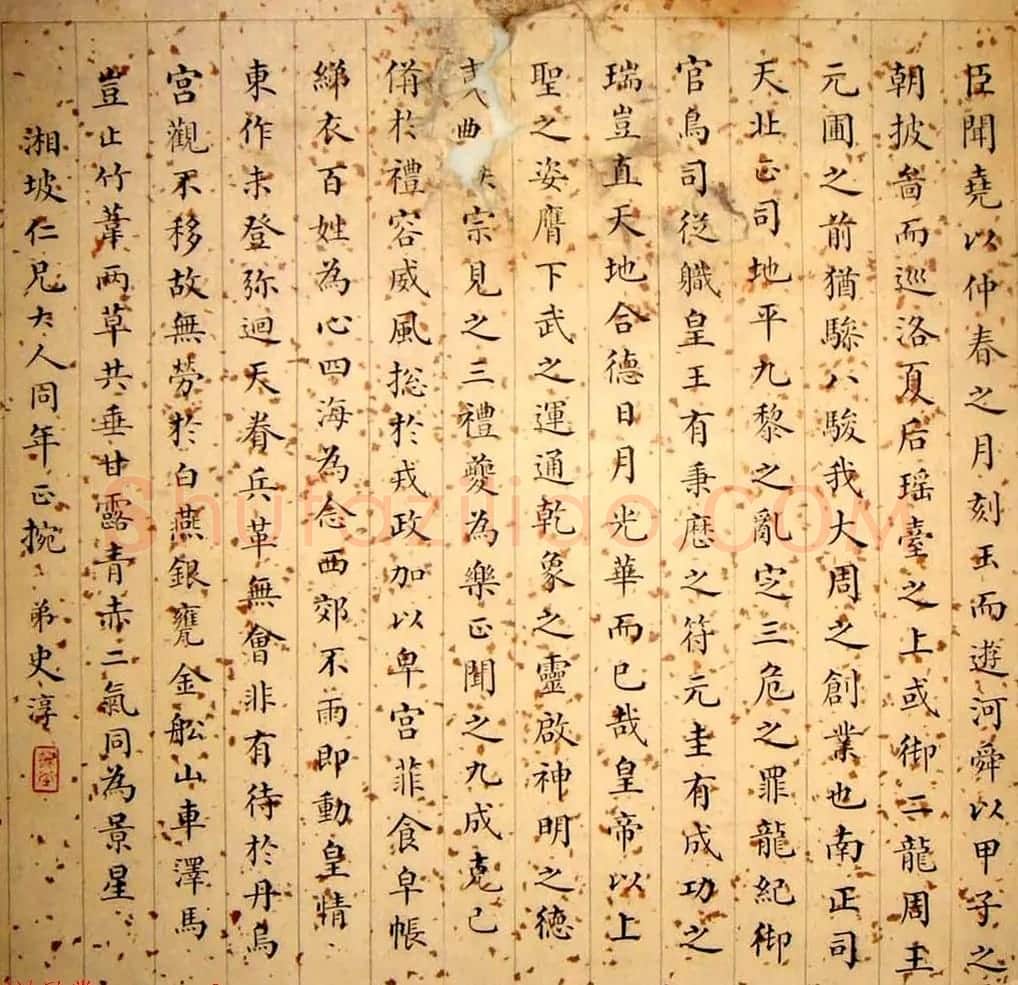 臣聞堯以仲春之月刻玉而遊河舜以甲子之
朝披啚而巡洛夏后瑶臺之上或御二龍周王
元圃之前猶驂八駿我大周之創業也南正司
天北正司地平九黎之亂定三危之罪龍紀御
官鳥司從職皇王有秉歷之符元圭有成功之
瑞豈直天地合德日月光華而已哉皇帝以上
聖之姿膺下武之運通乾象之靈啟神明之德
典宗見之三禮夔為樂正聞之九成克己
備於禮容威風捴於戎政加以卑宮菲食皁帳
綈衣百姓為心四海為念西郊不雨即動皇情
東作未登弥迴天眷兵革無會非有待於丹烏
宮觀不移故無勞於白燕銀甕金舩山車澤馬
豈止竹葦兩草共垂甘露青赤二氣同為景星
湘坡仁兄大人同年正捥 弟史淳
Shufaziliao.COM